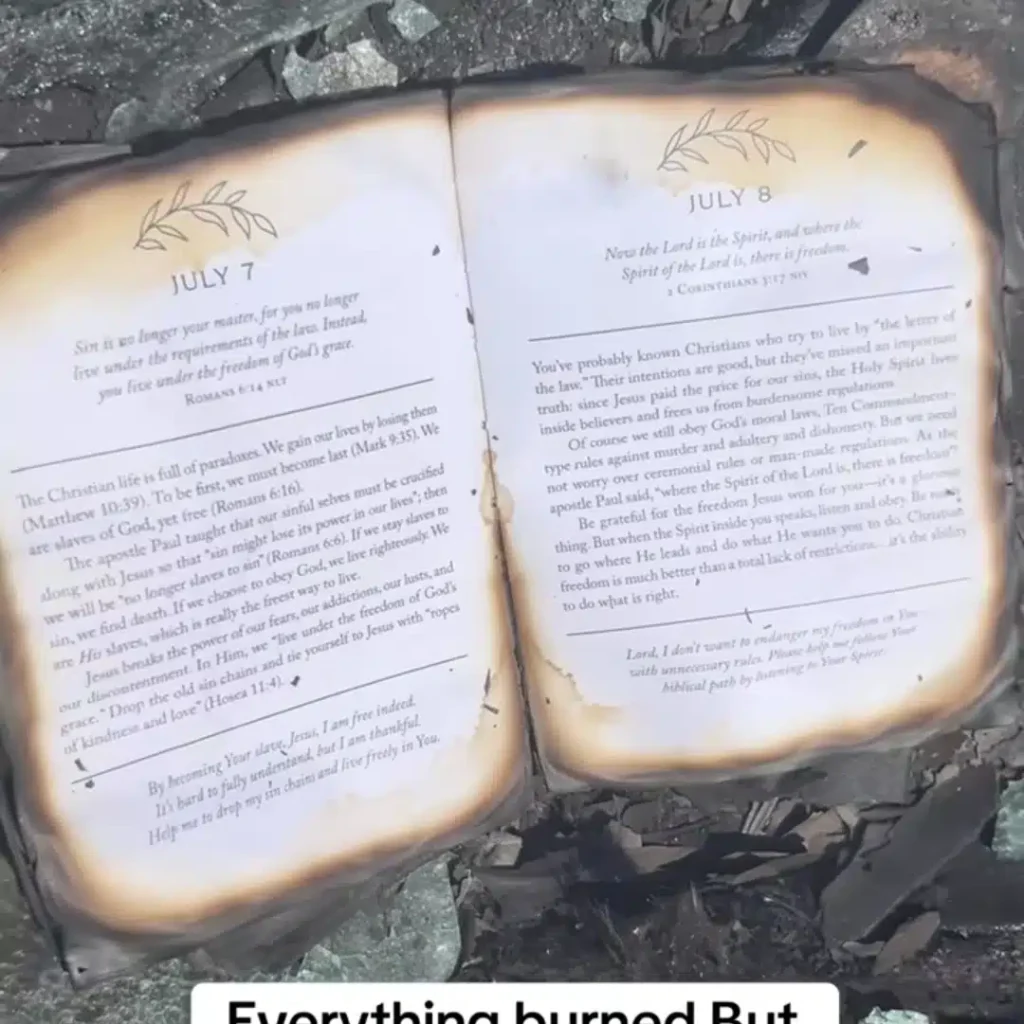 JULY 7
Sin is no longer your master, for you no longer
live under the requirements of the law. Instead,
you live under the freedom of God's grace.
ROMANS 6:14 NLT
The Christian life is full of paradoxes. We gain our lives by losing them
(Matthew 10:39). To be first, we must become last (Mark 9:35). We
are slaves of God, yet free (Romans 6:16).
The apostle Paul taught that our sinful selves must be crucified
along with Jesus so that "sin might lose its power in our lives"; then
we will be "no longer slaves to sin" (Romans 6:6). If we stay slaves to
sin, we find death. If we choose to obey God, we live righteously. We
are His slaves, which is really the freest way to live.
Jesus breaks the power of our fears, our addictions, our lusts, and
our discontentment. In Him, we "live under the freedom of God's
grace." Drop the old sin chains and tie yourself to Jesus with "ropes
of kindness and love" (Hosea 11:4).
By becoming Your slave, Jesus, I am free indeed.
It's hard to fully understand, but I am thankful.
Help me to drop my sin chains and live freely in You.
JULY 8
Now the Lord is the Spirit, and where the
Spirit of the Lord is, there is freedom.
2 CORINTHIANS 3:17 NIV
You've probably known Christians who try to live by "the letter of
the law." Their intentions are good, but they've missed an important
truth: since Jesus paid the price for our sins, the Holy Spirit lives
inside believers and frees us from burdensome regulations.
Of course we still obey God's moral laws, Ten Commandment-
type rules against murder and adultery and dishonesty. But we need
not worry over ceremonial rules or man-made regulations. As the
apostle Paul said, "where the Spirit of the Lord is, there is freedom"!
Be grateful for the freedom Jesus won for you—it's a glorious
thing. But when the Spirit inside you speaks, listen and obey. Be ready
to go where He leads and do what He wants you to do. Christian
freedom is much better than a total lack of restrictions. . .it's the ability
to do what is right.
Lord, I don't want to endanger my freedom in You
with unnecessary rules. Please help me follow Your
biblical path by listening to Your Spirit.
Everything burned But